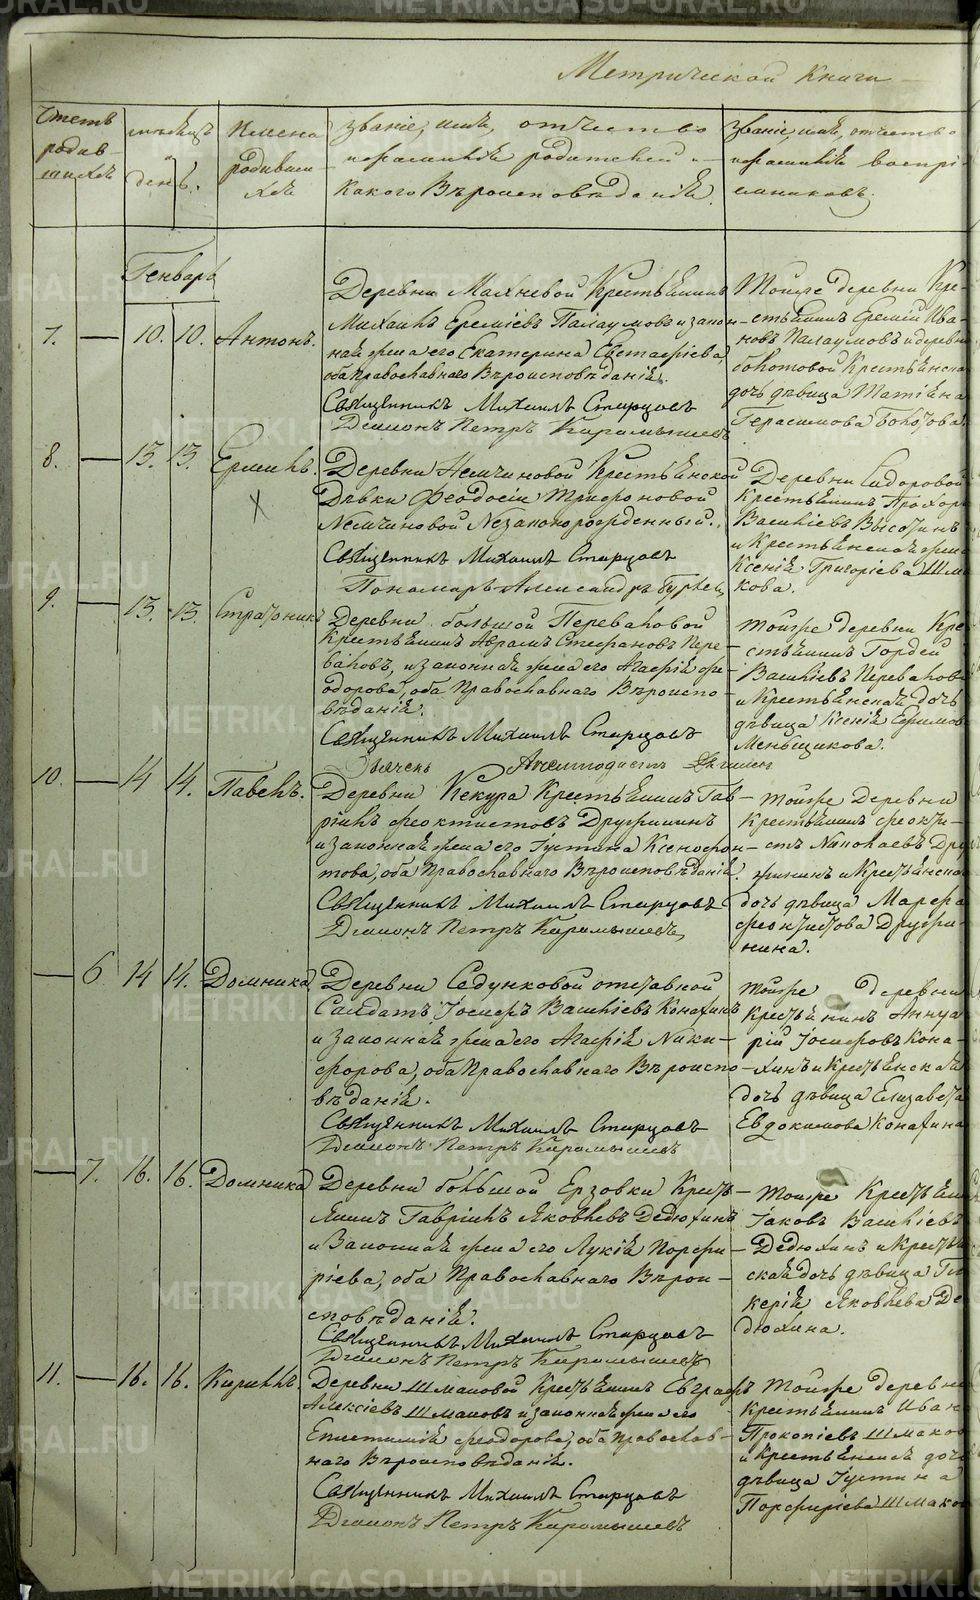 METRIKI.GASO-URAL.RU
Метрической Книги
Счетъ родив-шихся
мѣсяцъ и день.
Имена родившихся
Званіе, имя, отчество и фамилія родителей и какого Вѣроисповѣданія.
Званіе, имя, отчество и фамилія воспріемниковъ.
Генварь
7. — 10. 10. Антонъ.
Деревни Махневой Крестьянинъ
Михаилъ Еремѣевъ Палаумовъ и закон-
ная жена его Екатерина Евстафіева,
оба Православнаго Вѣроисповѣданія.
Священникъ Михаилъ Старцовъ
Діаконъ Петръ Карамышевъ
Тойже деревни Кре-
стьянинъ Еремѣй Ива-
новъ Палаумовъ и деревни
Болотовой Крестьянская
дочь дѣвица Татіяна
Герасимова Болотова.
8. — 13. 13. Ермилъ.
Деревни Немчиновой Крестьянской
Дѣвки Феодосіи Трифоновой
Немчиновой Незаконорожденный.
Священникъ Михаилъ Старцовъ
Пономарь Александръ
Деревни Сидоровой
Крестьянинъ Прохоръ
Васильевъ и Крестьянская жена
Ксенія Григоріева
кова.
9. — 13. 13. Стратоникъ
Деревни большой Переваловой
Крестьянинъ Аврамъ Стефановъ Пере-
валовъ, и законная жена его Агафія Фе-
одорова, оба Православнаго Вѣроиспо-
вѣданія.
Священникъ Михаилъ Старцовъ
Дьячекъ
Тойже деревни Кре-
стьянинъ Гордей
Васильевъ Переваловъ
и Крестьянская дочь
дѣвица Ксенія Ефимова
Меньщикова.
10. — 14 14. Павелъ.
Деревни Кекура Крестьянинъ Гав-
ріилъ Феоктистовъ Дружининъ
и законная жена его Іустина Ксенофон-
това, оба Православнаго Вѣроисповѣданія.
Священникъ Михаилъ Старцовъ
Діаконъ Петръ Карамышевъ
Тойже Деревни
Крестьянинъ Феокти-
стъ Николаевъ Дру-
жининъ и Крестьянская
дочь дѣвица Марфа
Феоктистова Дружи-
нина.
— 6 14 14. Домника
Деревни Седунковой отставной
Салдатъ Іосифъ Васильевъ Конахинъ
и законная жена его Агафія Ники-
форова, оба Православнаго Вѣроиспо-
вѣданія.
Священникъ Михаилъ Старцовъ
Діаконъ Петръ Карамышевъ
Тойже деревни
Крестьянинъ Аннуа-
рій Іосифовъ Кона-
хинъ и Крестьянская
дочь дѣвица Елизавета
Евдокимова Конахина
— 7. 16. 16. Домника
Деревни большой Ерзовки Кресть-
янинъ Гавріилъ Яковлевъ Дедюхинъ
и Законная жена его Лукія Порфи-
ріева, оба Православнаго Вѣрои-
сповѣданія.
Священникъ Михаилъ Старцовъ
Діаконъ Петръ Карамышевъ
Тойже Крестьянинъ
Іаковъ Васильевъ
Дедюхинъ и Крестьян-
ская дочь дѣвица Гли-
керія Яковлева Де-
дюхина.
11. — 16. 16. Кириллъ.
Деревни Шмаковой Крестьянинъ Евграфъ
Алексіевъ Шмаковъ и законная жена его
Епистимія Феодорова, оба Православ-
наго Вѣроисповѣданія.
Священникъ Михаилъ Старцовъ
Діаконъ Петръ Карамышевъ
Тойже деревни
Крестьянинъ Иванъ
Прокопіевъ Шмаковъ
и Крестьянская дочь
дѣвица Іустина
Порфиріева Шмако